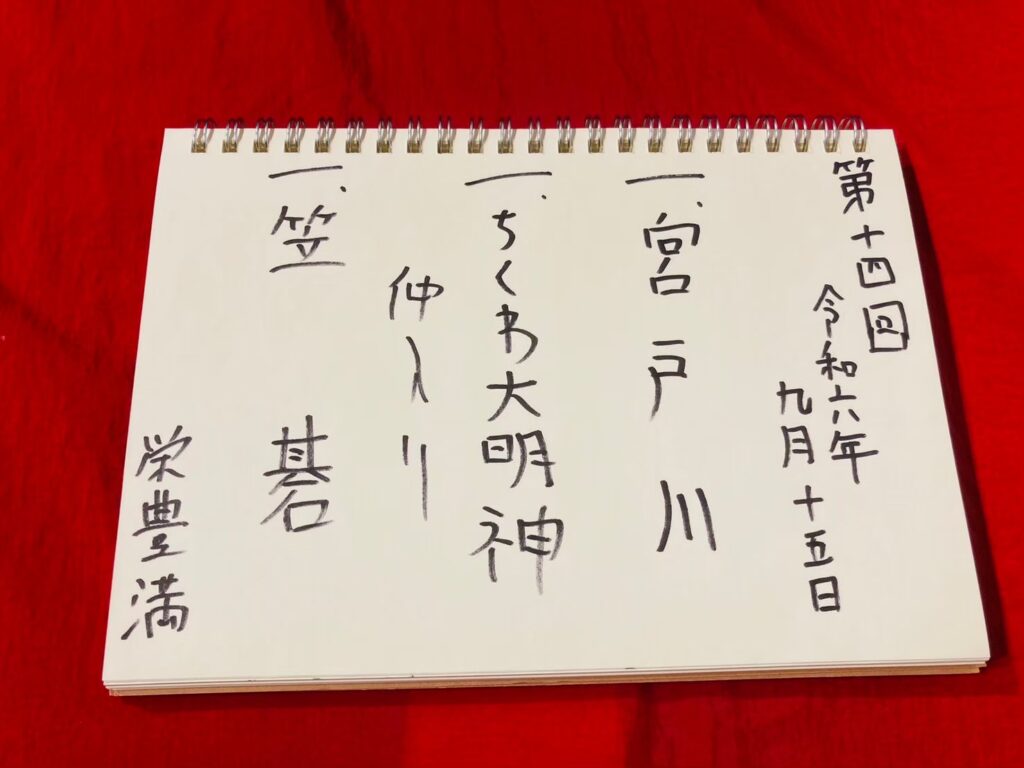 第十四回
令和六年
九月十五日
一、宮戸川
一、ちくわ大明神
仲入り
一、笠碁
栄豊満